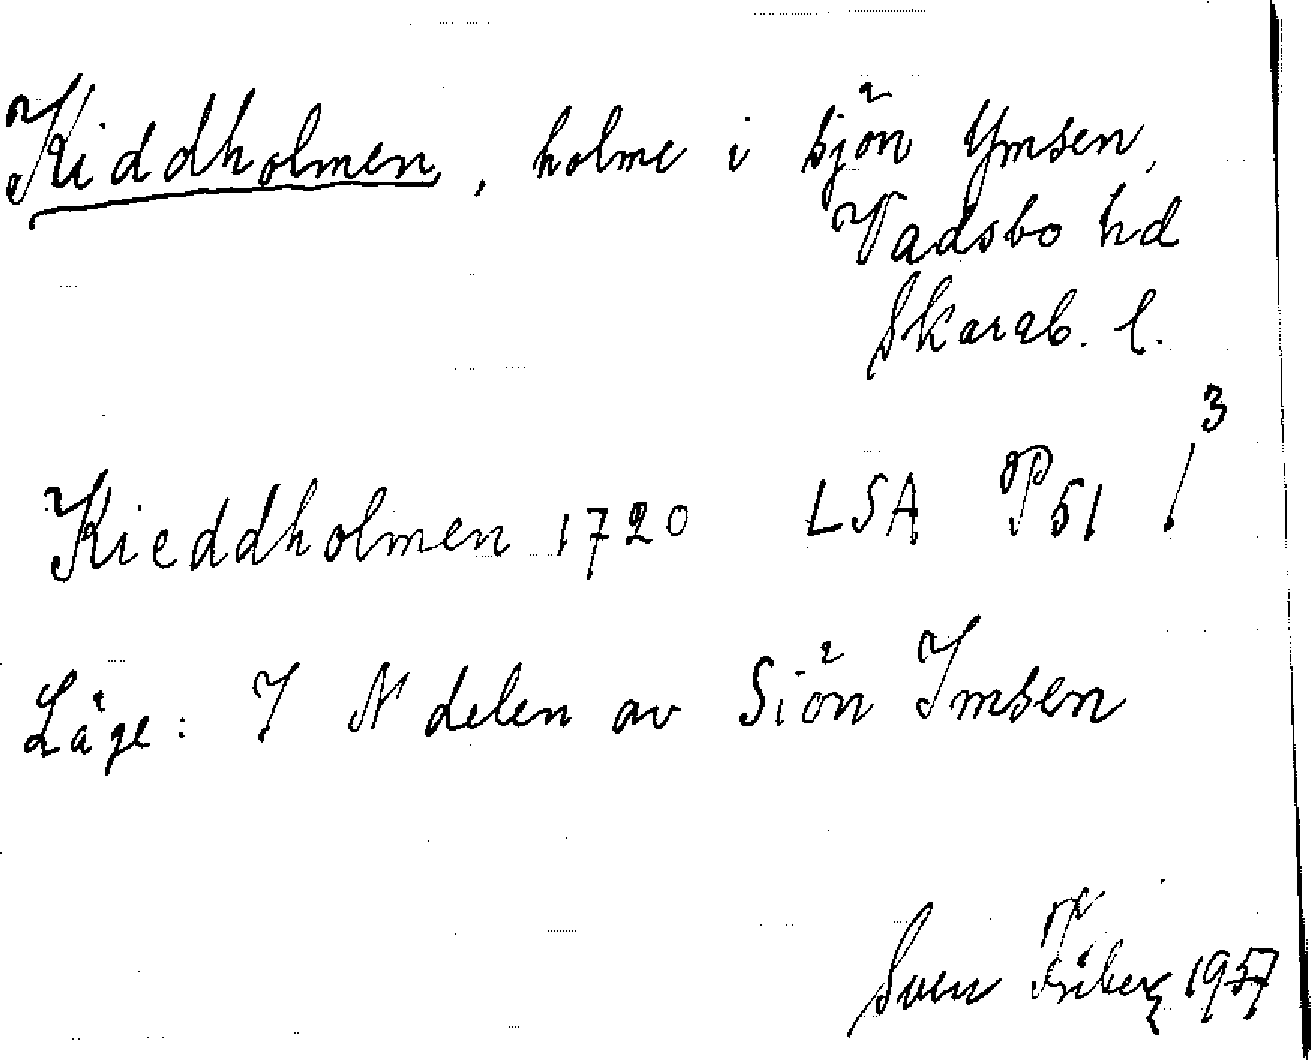 Kiddholmen, holme i sjön Ymsen,
Vadsbo hd
Skarab. l.
Kieddholmen 1720 LSA P51 / 3
Läge: I N delen av Siön Imsen
Sven Friberg 1957